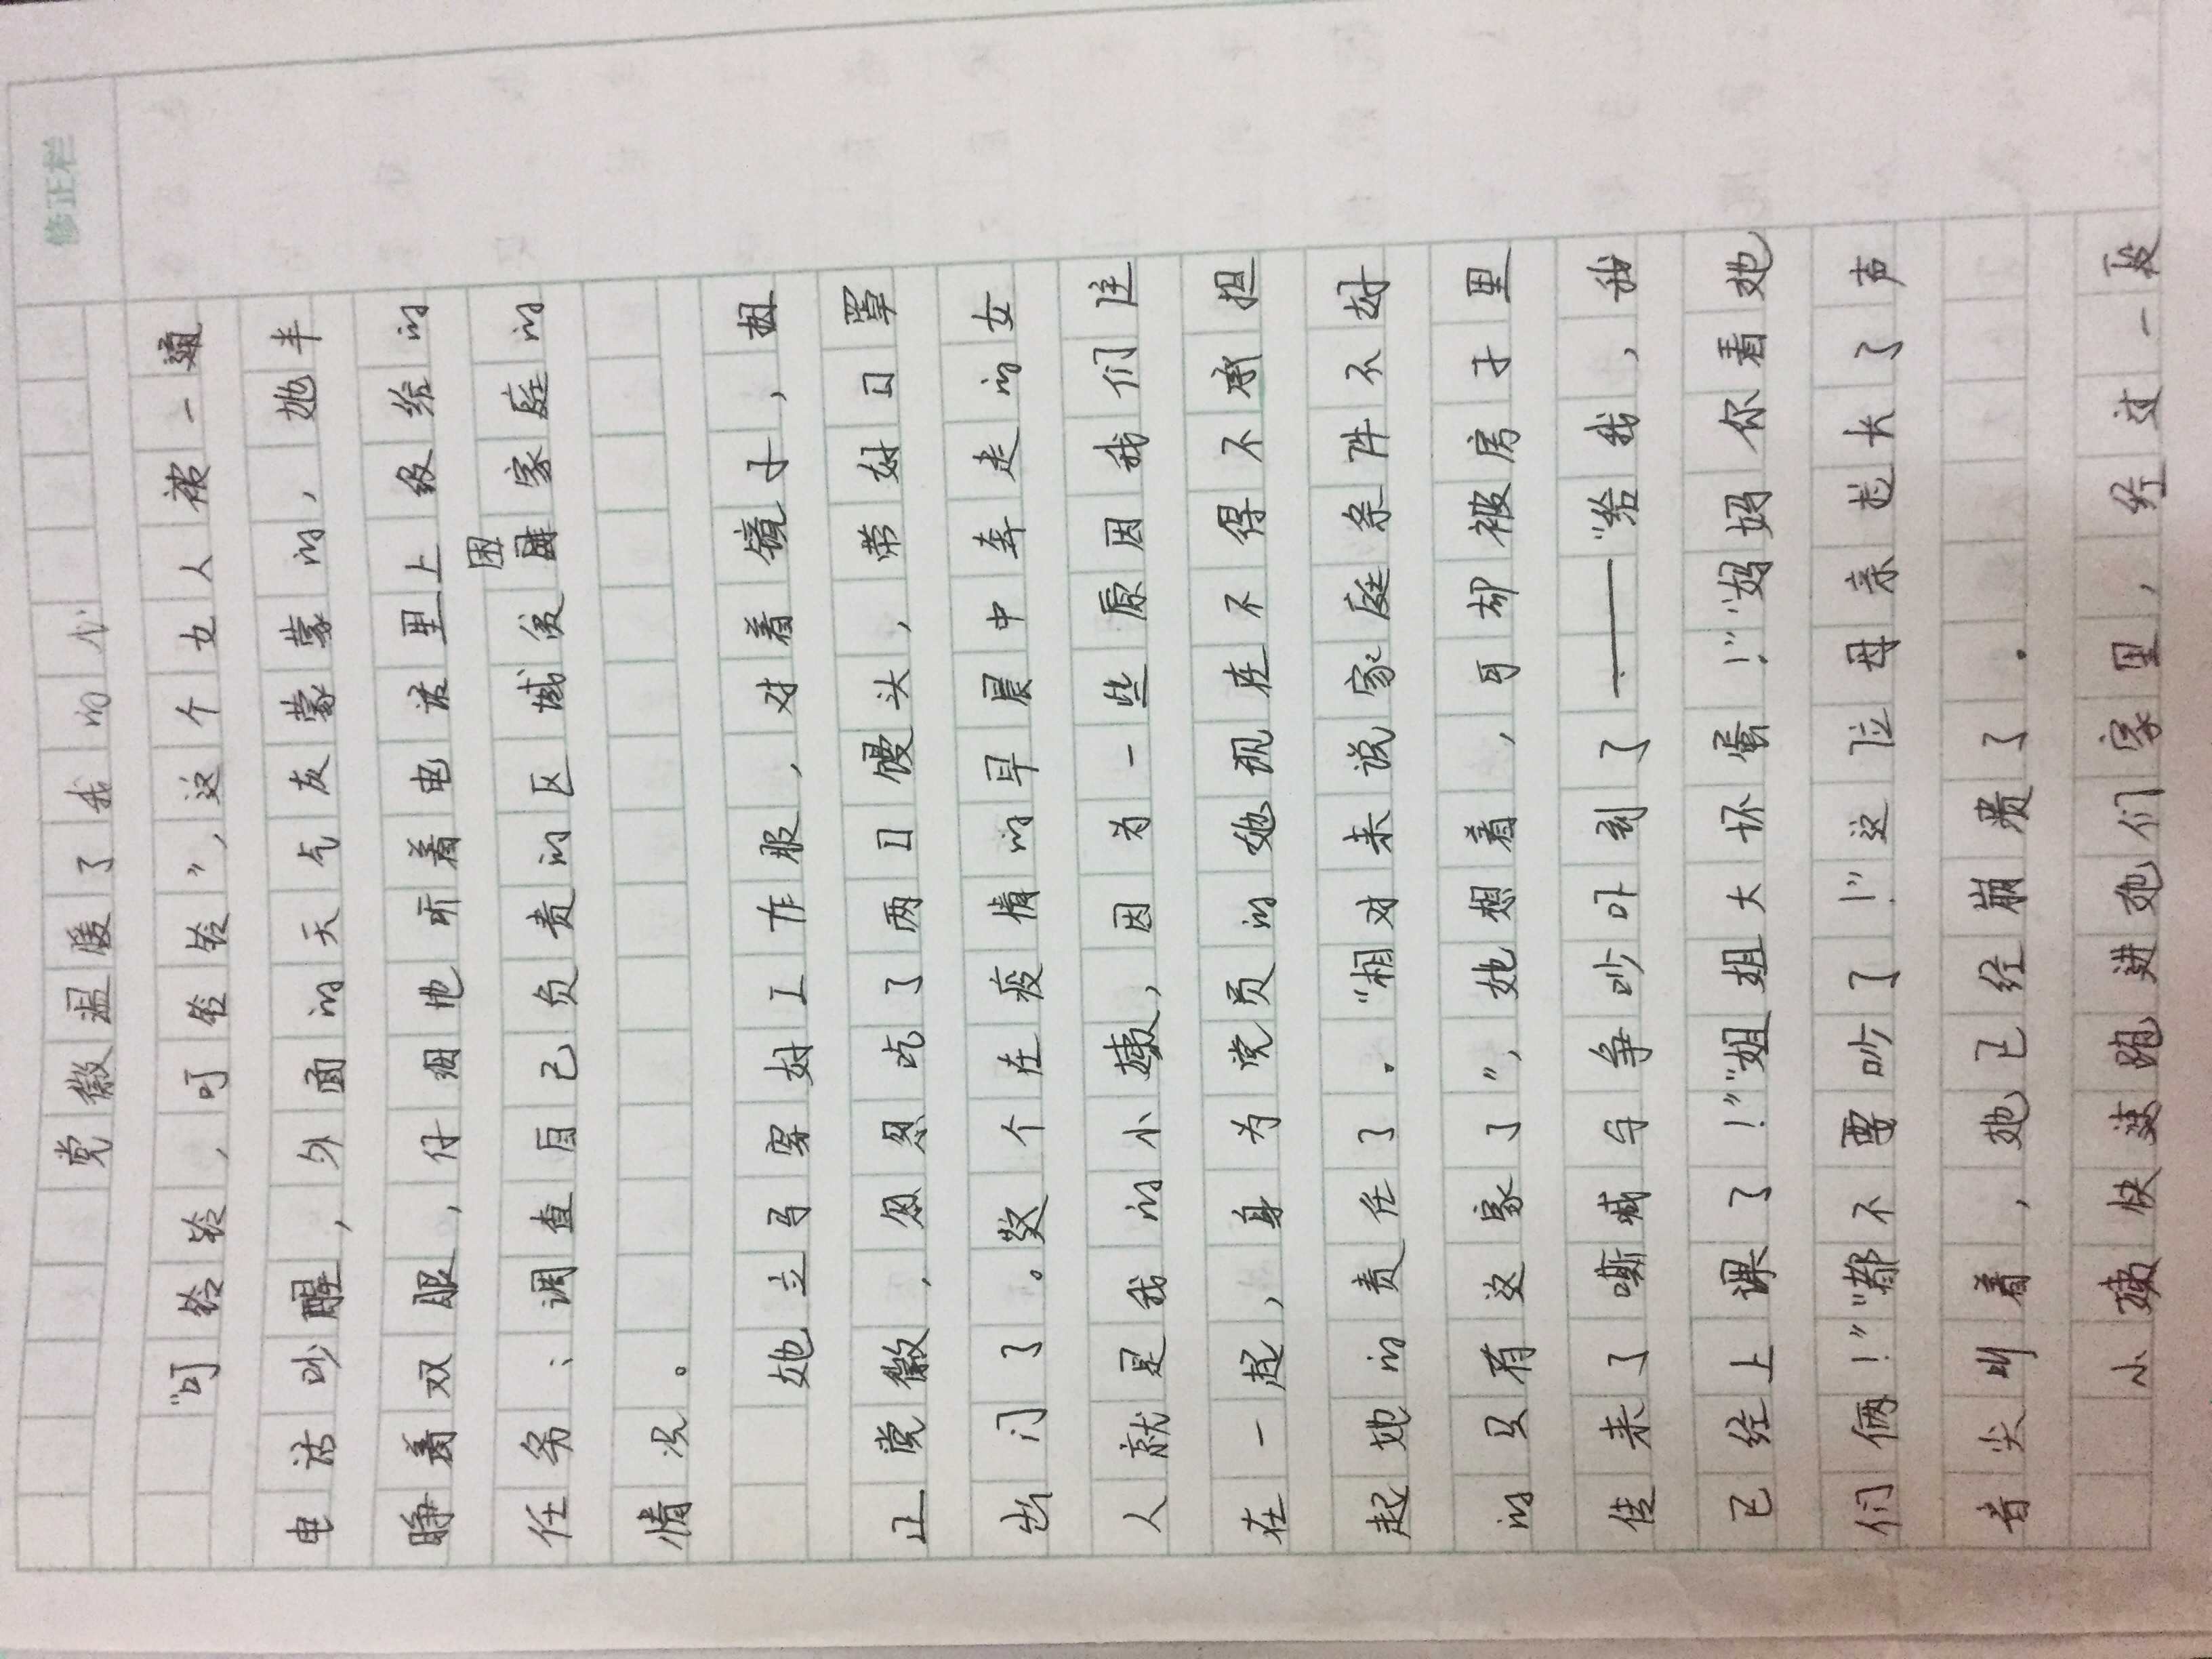 修正栏
党徽温暖了我的心
“叮铃铃，叮铃铃”，这个女人被一通
电话吵醒，外面的天气灰蒙蒙的，她半
睁着双眼，仔细地听着电话里上级给的
任务：调查自己负责的区域贫困家庭的
情况。
她立马穿好工作服，对着镜子，扭
正党徽，匆匆吃了两口馒头，带好口罩
出门了。这个在疫情的早晨中奔走的女
人就是我的小姨，因为一些原因我们住
在一起，身为党员的她现在不得不承担
起她的责任了。“相对来说家庭条件不好
的只有这家了”，她想着，可却被房子里
传来了嘶喊与争吵吓到了——“给我，我
已经上课了！”“姐姐大坏蛋！”“妈妈你看她
们俩！”“都不要吵了！”这位母亲拉长了声
音尖叫着，她已经崩溃了。
小姨快速跑进她们家里，经过一段